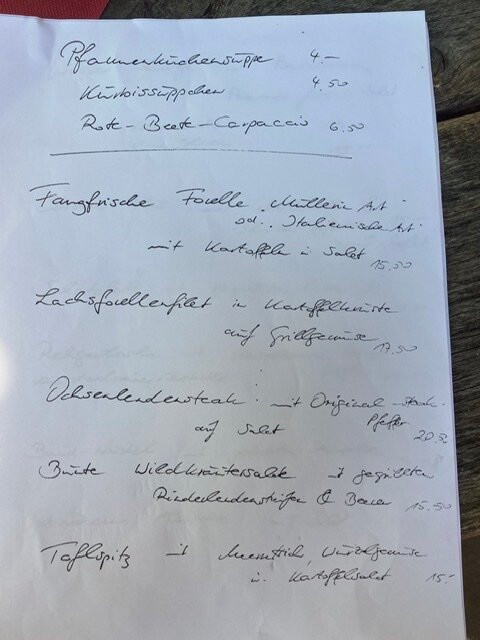 Pfannenkuchensuppe 4.–
Kürbissüppchen 4.50
Rote-Beete-Carpaccio 6.50
Fangfrische Forelle „Müllerin Art"
od. „Italienische Art"
mit Kartoffeln u Salat 15.50
Lachsforellenfilet in Kartoffelkruste
auf Grillgemüse 17.50
Ochsenlendensteak mit Original-Steak-
Pfeffer
auf Salat 20.50
Bunte Wildkräutersalat mit gegrillten
Rinderlendenstreifen & Beeren 15.50
Taflspitz mit Meerrettich, Wurzelgemüse
u. Kartoffelsalat 15.–